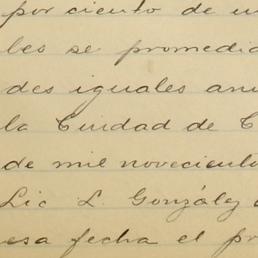 por ciento de u
les se promedia
des iguales anu
la Ciudad de C
de mil noveciento
Lic L. González
esa fecha el pr